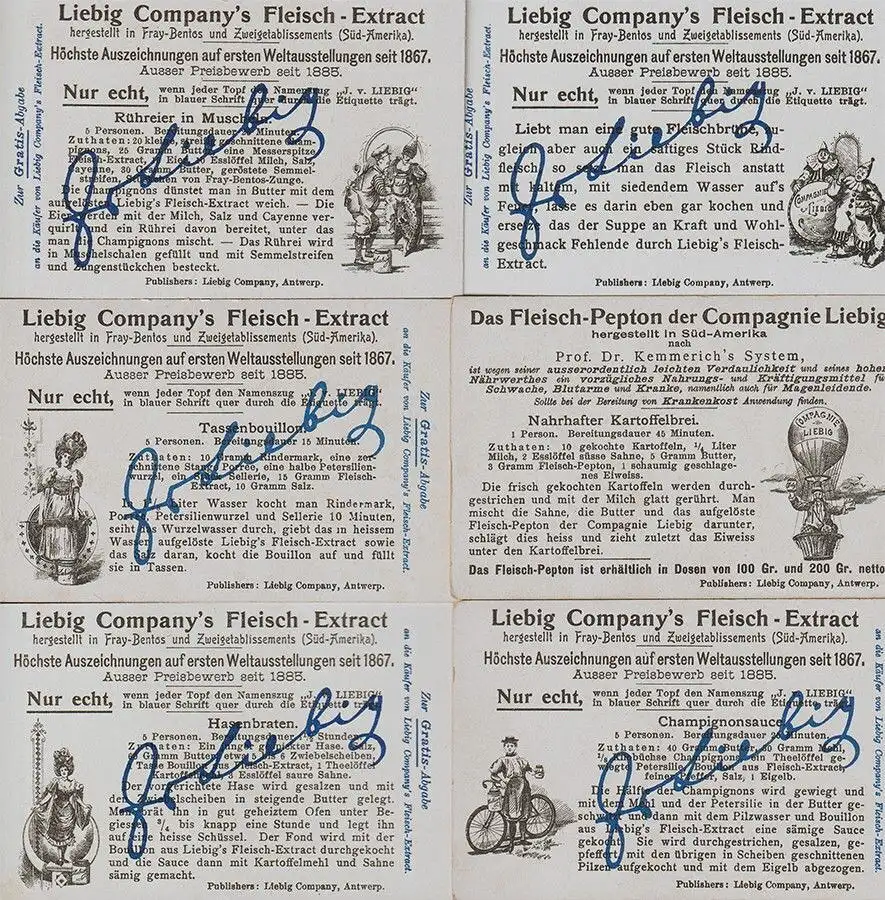 Liebig Company's Fleisch-Extract
hergestellt in Fray-Bentos und Zweigetablissements (Süd-Amerika).
Höchste Auszeichnungen auf ersten Weltausstellungen seit 1867.
Ausser Preisbewerb seit 1885.
Nur echt, wenn jeder Topf den Namenszug „J. v. LIEBIG“
in blauer Schrift quer durch die Etiquette trägt.
Rühreier in Muscheln.
5 Personen. Bereitungsdauer Minuten.
Zuthaten: 20 kleine,
pignons, 25 Gramm Butter, eine Messerspitze
Fleisch-Extract, Eier, Esslöffel Milch, Salz,
Cayenne, Gramm Butter, geröstete Semmel-
streifen, von Fray-Bentos-Zunge.
Die Champignons dünstet man in Butter mit dem
aufgelösten Liebig's Fleisch-Extract weich. — Die
Eier werden mit der Milch, Salz und Cayenne ver-
quirlt und ein Rührei davon bereitet, unter das
man Champignons mischt. — Das Rührei wird
in Muschelschalen gefüllt und mit Semmelstreifen
und Zungenstückchen besteckt.
Publishers: Liebig Company, Antwerp.
Zur Gratis-Abgabe
an die Käufer von Liebig Company's Fleisch-Extract.
J. v. Liebig
Liebig Company's Fleisch-Extract
hergestellt in Fray-Bentos und Zweigetablissements (Süd-Amerika).
Höchste Auszeichnungen auf ersten Weltausstellungen seit 1867.
Ausser Preisbewerb seit 1885.
Nur echt, wenn jeder Topf den Namenszug „J. v. LIEBIG“
in blauer Schrift quer durch die Etiquette trägt.
Liebt man eine gute Fleischbrühe, zu-
gleich aber auch ein saftiges Stück Rind-
fleisch, so setze man das Fleisch anstatt
mit kaltem, mit siedendem Wasser auf's
Feuer, lasse es darin eben gar kochen und
ersetze das der Suppe an Kraft und Wohl-
geschmack Fehlende durch Liebig's Fleisch-
Extract.
COMPAGNIE
LIEBIG
Publishers: Liebig Company, Antwerp.
Zur Gratis-Abgabe
an die Käufer von Liebig Company's Fleisch-Extract.
J. v. Liebig
Liebig Company's Fleisch-Extract
hergestellt in Fray-Bentos und Zweigetablissements (Süd-Amerika).
Höchste Auszeichnungen auf ersten Weltausstellungen seit 1867.
Ausser Preisbewerb seit 1885.
Nur echt, wenn jeder Topf den Namenszug „J. v. LIEBIG“
in blauer Schrift quer durch die Etiquette trägt.
Tassenbouillon.
5 Personen. Bereitungsdauer 15 Minuten.
Zuthaten: 10 Gramm Rindermark, eine zer-
schnittene Stange Porree, eine halbe Petersilien-
wurzel, ein Sellerie, 15 Gramm Fleisch-
Extract, 10 Gramm Salz.
Liter Wasser kocht man Rindermark,
Porree, Petersilienwurzel und Sellerie 10 Minuten,
seiht das Wurzelwasser durch, giebt das in heissem
Wasser aufgelöste Liebig's Fleisch-Extract sowie
das Salz daran, kocht die Bouillon auf und füllt
sie in Tassen.
Publishers: Liebig Company, Antwerp.
Zur Gratis-Abgabe
an die Käufer von Liebig Company's Fleisch-Extract.
J. v. Liebig
Das Fleisch-Pepton der Compagnie Liebig
hergestellt in Süd-Amerika
nach
Prof. Dr. Kemmerich's System,
ist wegen seiner ausserordentlich leichten Verdaulichkeit und seines hohen
Nährwerthes ein vorzügliches Nahrungs- und Kräftigungsmittel für
Schwache, Blutarme und Kranke, namentlich auch für Magenleidende.
Sollte bei der Bereitung von Krankenkost Anwendung finden.
Nahrhafter Kartoffelbrei.
1 Person. Bereitungsdauer 45 Minuten.
Zuthaten: 10 gekochte Kartoffeln, Liter
Milch, 2 Esslöffel süsse Sahne, 5 Gramm Butter,
3 Gramm Fleisch-Pepton, 1 schaumig geschlage-
nes Eiweiss.
Die frisch gekochten Kartoffeln werden durch-
gestrichen und mit der Milch glatt gerührt. Man
mischt die Sahne, die Butter und das aufgelöste
Fleisch-Pepton der Compagnie Liebig darunter,
schlägt dies heiss und zieht zuletzt das Eiweiss
unter den Kartoffelbrei.
COMPAGNIE
LIEBIG
Das Fleisch-Pepton ist erhältlich in Dosen von 100 Gr. und 200 Gr. netto
Publishers: Liebig Company, Antwerp.
Liebig Company's Fleisch-Extract
hergestellt in Fray-Bentos und Zweigetablissements (Süd-Amerika).
Höchste Auszeichnungen auf ersten Weltausstellungen seit 1867.
Ausser Preisbewerb seit 1885.
Nur echt, wenn jeder Topf den Namenszug „J. v. LIEBIG“
in blauer Schrift quer durch die Etiquette trägt.
Hasenbraten.
5 Personen. Bereitungsdauer Stunden.
Zuthaten: Ein junger gespickter Hase, Salz,
Gramm Butter, etwa 5 bis 6 Zwiebelscheiben,
Tasse Bouillon aus Fleisch-Extract, 1 Theelöffel
Kartoffelmehl, Esslöffel saure Sahne.
Der vorgerichtete Hase wird gesalzen und mit
den Zwiebelscheiben in steigende Butter gelegt.
Man brät ihn in gut geheiztem Ofen unter Be-
giessen 3/4 bis knapp eine Stunde und legt ihn
auf eine heisse Schüssel. Der Fond wird mit der
Bouillon aus Liebig's Fleisch-Extract durchgekocht
und die Sauce dann mit Kartoffelmehl und Sahne
sämig gemacht.
Publishers: Liebig Company, Antwerp.
Zur Gratis-Abgabe
an die Käufer von Liebig Company's Fleisch-Extract.
J. v. Liebig
Liebig Company's Fleisch-Extract
hergestellt in Fray-Bentos und Zweigetablissements (Süd-Amerika).
Höchste Auszeichnungen auf ersten Weltausstellungen seit 1867.
Ausser Preisbewerb seit 1885.
Nur echt, wenn jeder Topf den Namenszug „J. v. LIEBIG“
in blauer Schrift quer durch die Etiquette trägt.
Champignonsauce.
5 Personen. Bereitungsdauer Minuten.
Zuthaten: 40 Gramm Butter, Gramm Mehl,
büchse Champignons, ein Theelöffel ge-
wiegte Petersilie, Bouillon aus Fleisch-Extract,
feiner Pfeffer, Salz, 1 Eigelb.
Die Hälfte der Champignons wird gewiegt und
mit dem Mehl und der Petersilie in der Butter ge-
schwitzt und dann mit dem Pilzwasser und Bouillon
aus Liebig's Fleisch-Extract eine sämige Sauce
gekocht. Sie wird durchgestrichen, gesalzen, ge-
pfeffert, mit den übrigen in Scheiben geschnittenen
Pilzen aufgekocht und mit dem Eigelb abgezogen.
Publishers: Liebig Company, Antwerp.
an die Käufer von Liebig Company's Fleisch-Extract.
J. v. Liebig